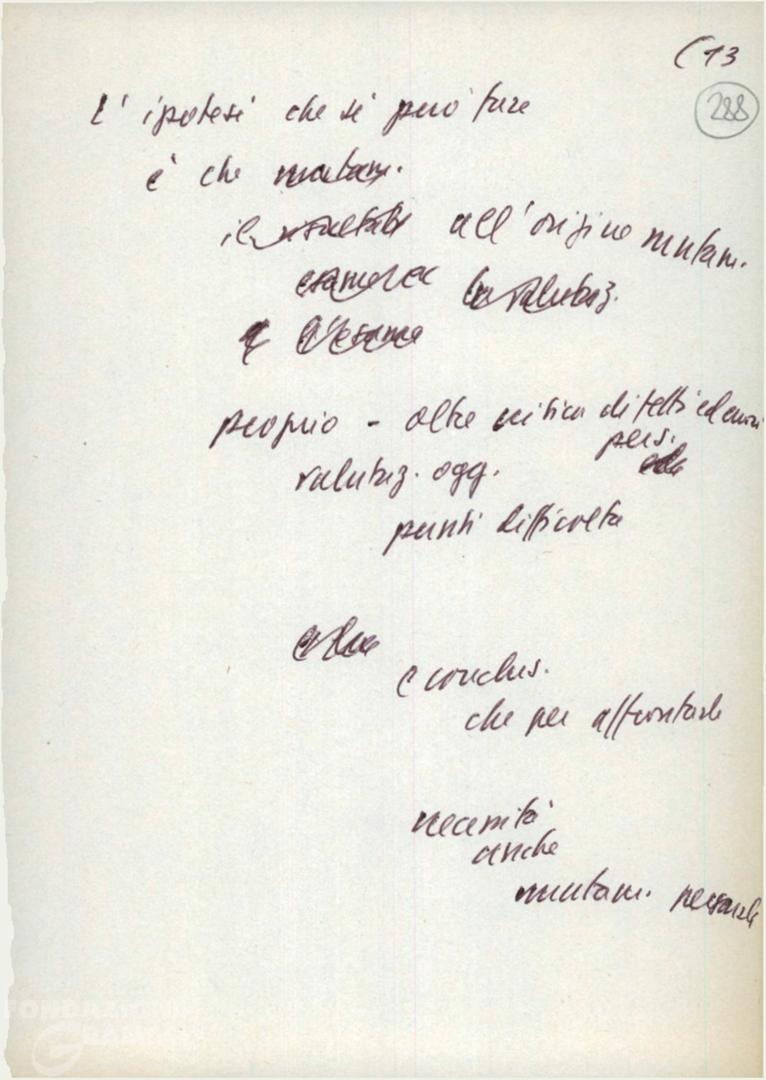 ( 13
288
L' ipotesi che si può fare
è che mutam.
il risultato all'origine mutam.
la valutaz.
e l'esame
proprio - oltre critica difetti ed errori
pers.
valutaz. ogg.
punti difficoltà
e conclus.
che per affrontarle
necessità
anche
mutam. personale
FONDAZIONE
GRAMSCI